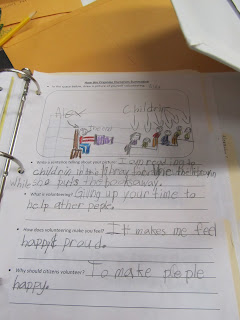 Alex
Children
Write a sentence telling about your picture. I am reading to
children in the libray for the
while puts the books away.
What is volunteering? Giving up your time to
help other peple.
How does volunteering make you feel? It makes me feel
happy & proud.
Why should citizens volunteer? To make people
happy.